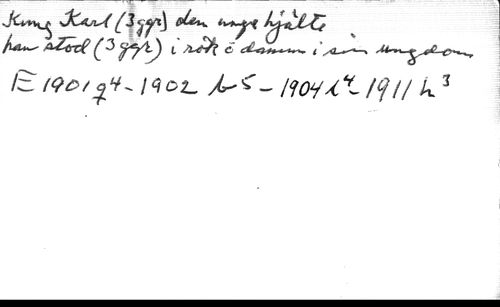 Kung Karl (3 ggr) den unge hjälte
han stod (3 ggr) i rök ö damm i sin ungdom
E 1901 q4 - 1902 b5 - 1904 i4 - 1911 h3